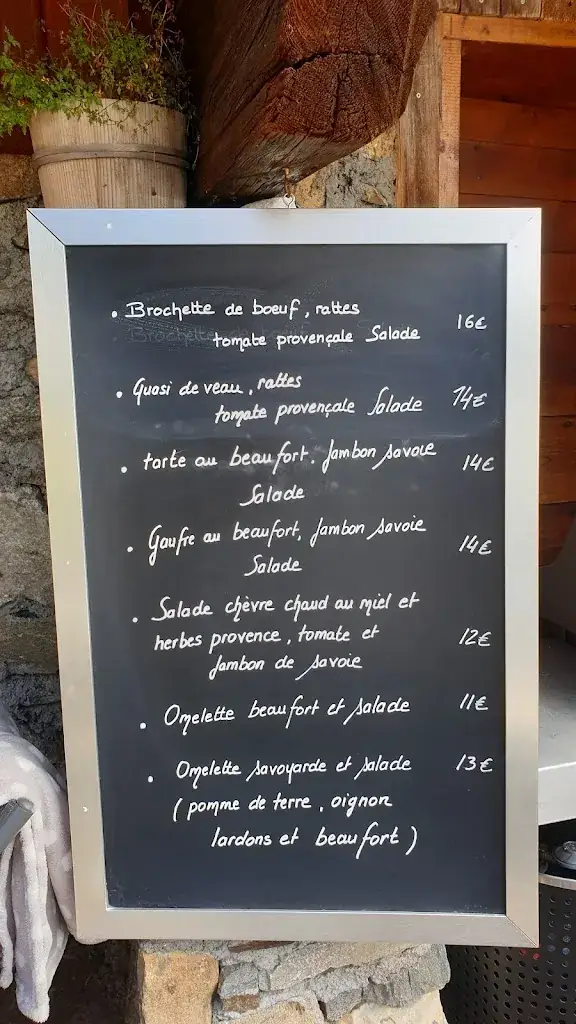 • Brochette de boeuf, rattes
tomate provençale Salade 16€
• Quasi de veau, rattes
tomate provençale Salade 14€
• tarte au beaufort. Jambon savoie 14€
Salade
• Gaufre au beaufort, Jambon savoie
Salade 14€
• Salade chèvre chaud au miel et
herbes provence, tomate et 12€
Jambon de savoie
• Omelette beaufort et salade 11€
• Omelette savoyarde et salade 13€
(pomme de terre, oignon
lardons et beaufort)